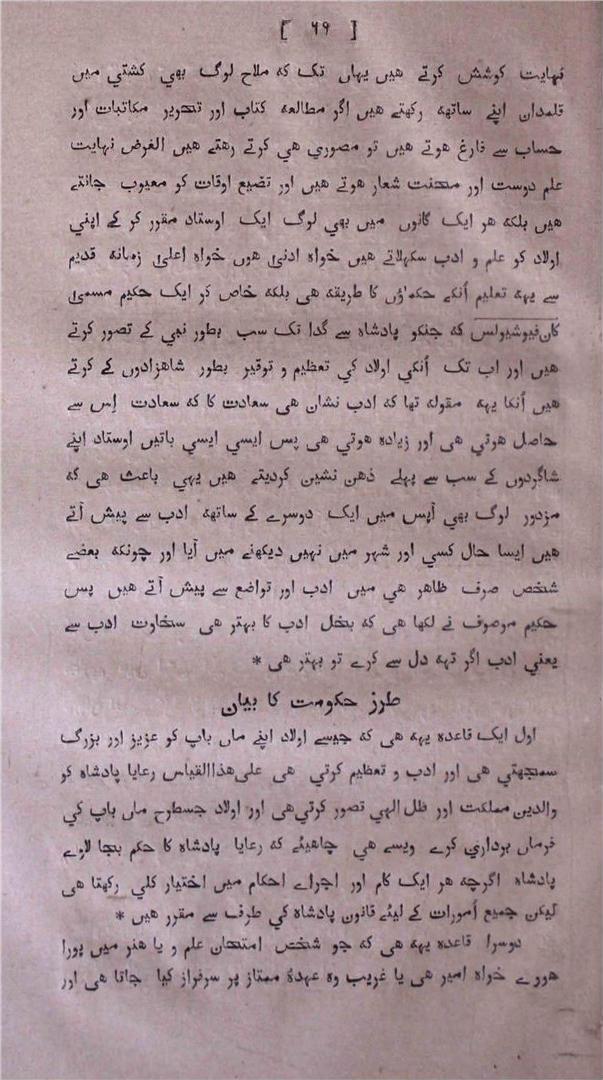 [ ۶۹ ]
نہایت کوشش کرتے هیں یہاں تک کہ ملاح لوگ بھی کشتي میں
قلمدان اپنے ساتھہ رکھتے هیں اگر مطالعہ کتاب اور تحریر مکاتبات اور
حساب سے فارغ هوتے هیں تو مصوري هي کرتے رهتے هیں الغرض نہایت
علم دوست اور محنت شعار هوتے هیں اور تضیع اوقات کو معیوب جانتے
هیں بلکہ هر ایک گانوں میں بھي لوگ ایک اوستاد مقرر کر کے اپني
اولاد کو علم و ادب سکھلاتے هیں خواہ ادنیٰ هوں خواہ اعلیٰ زمانہ قدیم
سے یہہ تعلیم اُنکے حکماؤں کا طریقہ هی بلکہ خاص کر ایک حکیم مسمی
کان‌فیوشیولس کہ جنکو پادشاہ سے گدا تک سب بطور نبي کے تصور کرتے
هیں اور اب تک اُنکي اولاد کي تعظیم و توقیر بطور شاهزادوں کے کرتے
هیں اُنکا یہہ مقولہ تھا کہ ادب نشان هی سعادت کا کہ سعادت اِس سے
حاصل هوتي هی اور زیادہ هوتي هی پس ایسي ایسي باتیں اوستاد اپنے
شاگردوں کے سب سے پہلے ذهن نشین کردیتے هیں یہي باعث هی کہ
مزدور لوگ بھي آپس میں ایک دوسرے کے ساتھہ ادب سے پیش آتے
هیں ایسا حال کسي اور شہر میں نہیں دیکھنے میں آیا اور چونکہ بعضے
شخص صرف ظاهر هي میں ادب اور تواضع سے پیش آتے هیں پس
حکیم موصوف نے لکھا هی کہ بخل ادب کا بہتر هی سخاوت ادب سے
یعني ادب اگر تہہ دل سے کرے تو بہتر هی *
طرز حکومت کا بیان
اول ایک قاعدہ یہہ هی کہ جیسے اولاد اپنے ماں باپ کو عزیز اور بزرگ
سمجھتي هی اور ادب و تعظیم کرتي هی علی‌هذاالقیاس رعایا پادشاہ کو
والدین مملکت اور ظل الہي تصور کرتي‌هی اور اولاد جسطرح ماں باپ کي
فرماں برداري کرے ویسے هي چاهیئے کہ رعایا پادشاہ کا حکم بجا لاوے
پادشاہ اگرچہ هر ایک کام اور اجراے احکام میں اختیار کلي رکھتا هی
لیکن جمیع اُمورات کے لیئے قانون پادشاہ کي طرف سے مقرر هیں *
دوسرا قاعدہ یہہ هی کہ جو شخص امتحان علم و یا هنر میں پورا
هورے خواہ امیر هی یا غریب وہ عہدۂ ممتاز پر سرفراز کیا جاتا هی اور